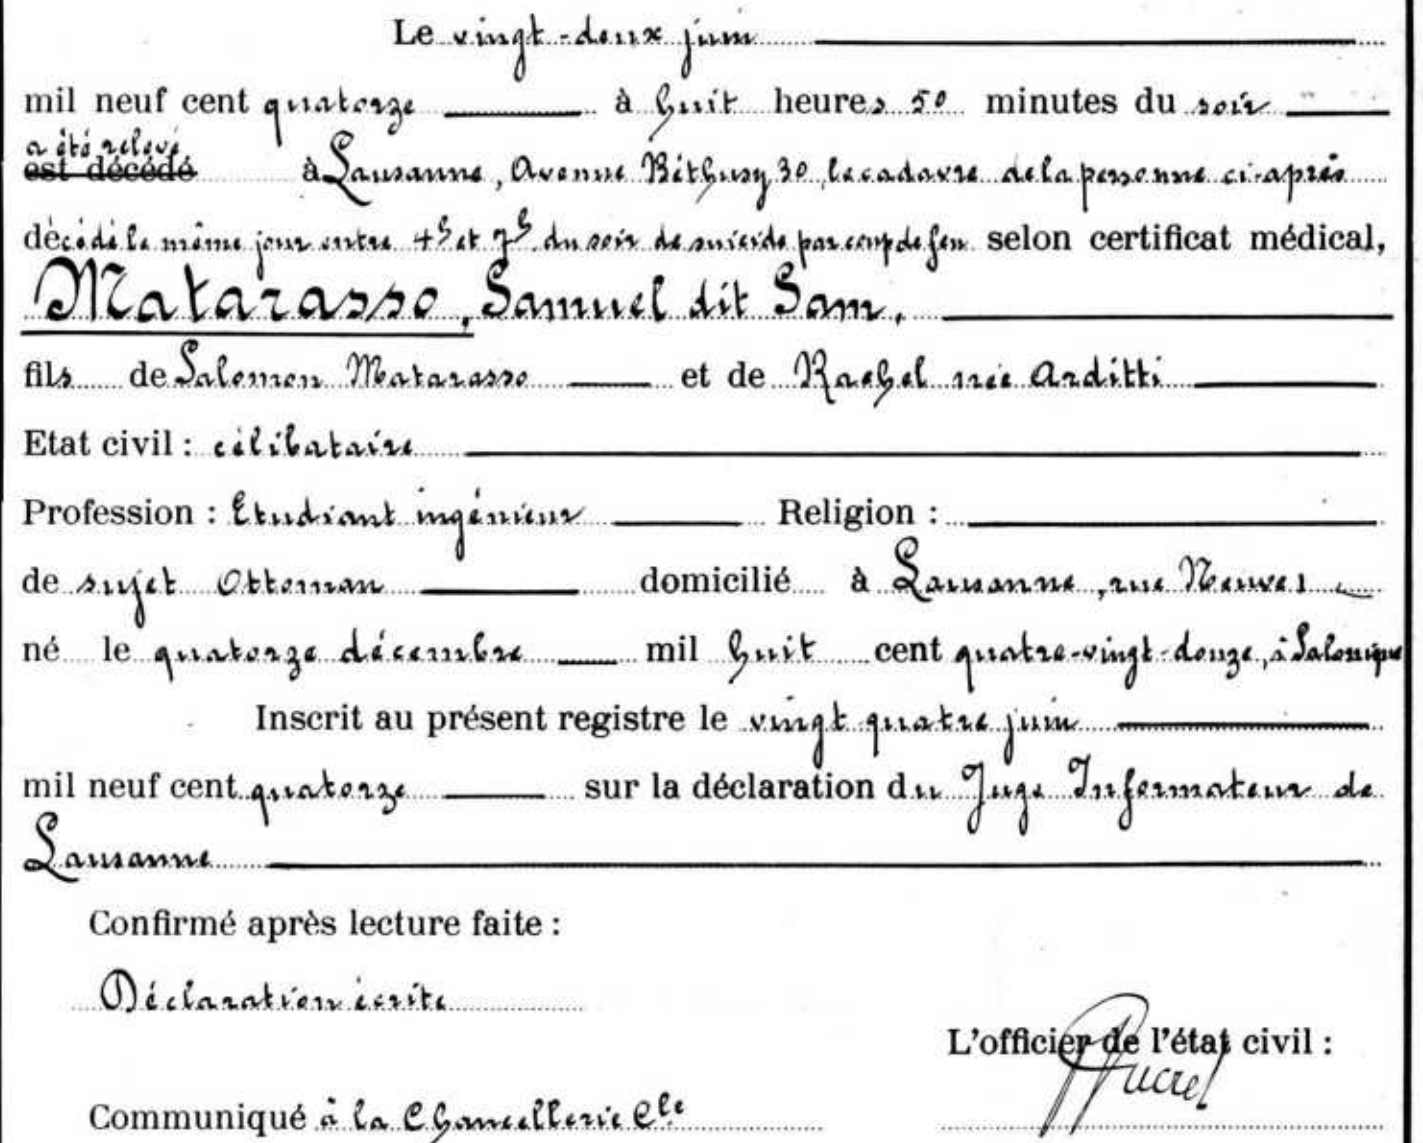 Le vingt-deux juin
mil neuf cent quatorze à huit heures 50 minutes du soir
a été relevé
est décédé à Lausanne, Avenue Béthusy 30, le cadavre de la personne ci-après
décédé le même jour entre 4h et 7h du soir de suicide par coup de feu selon certificat médical,
Matarasso, Samuel dit Sam,
fils de Salomon Matarasso et de Rachel née Arditti
Etat civil : célibataire
Profession : Etudiant ingénieur Religion :
de sujet Ottoman domicilié à Lausanne, rue Neuve 1
né le quatorze décembre mil huit cent quatre-vingt-douze, à Salonique
Inscrit au présent registre le vingt quatre juin
mil neuf cent quatorze sur la déclaration du Juge Informateur de
Lausanne
Confirmé après lecture faite :
Déclaration écrite
L'officier de l'état civil :
Communiqué à la Chancellerie Cle